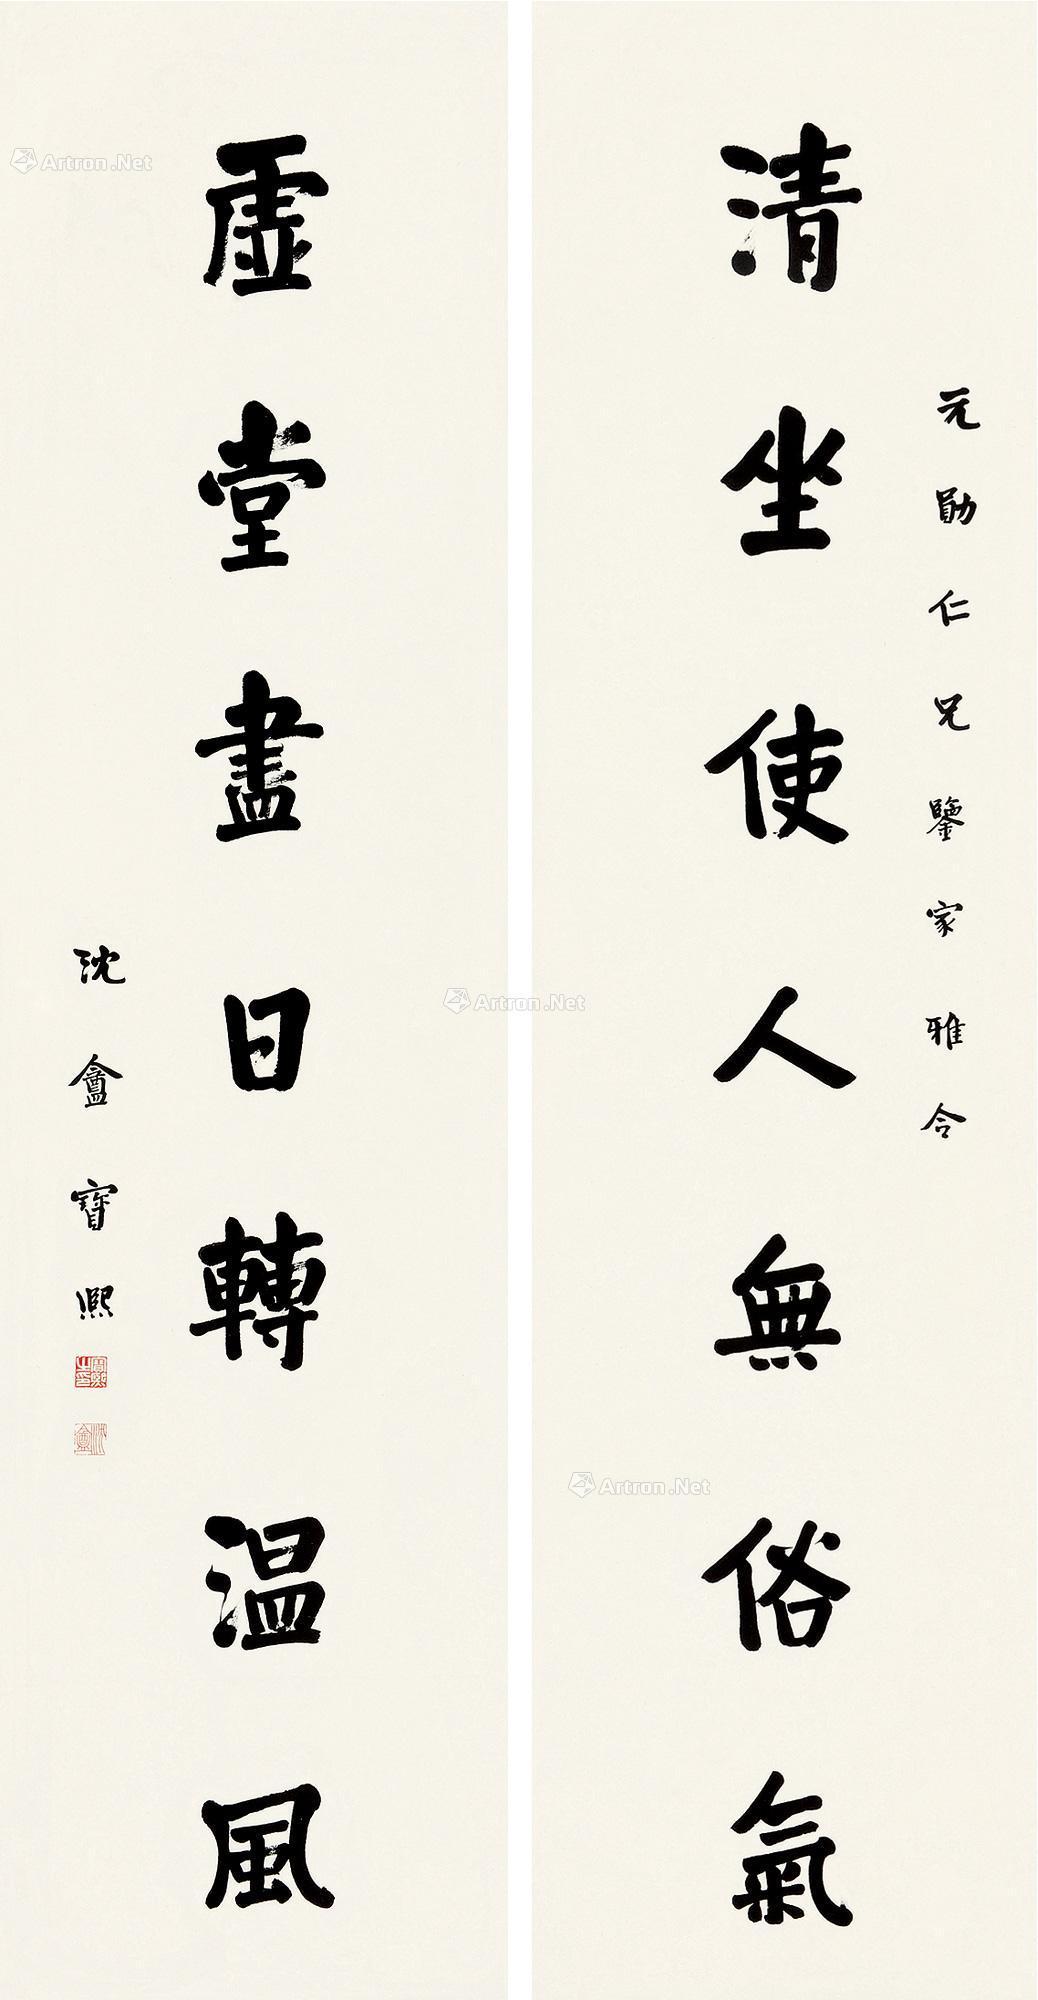 元勛仁兄鑒家雅令
清坐使人無俗氣
虛堂盡日轉温風
沈盦寶熙
寶熙之印
沈盦
Artron.Net
Artron.Net
Artron.Net